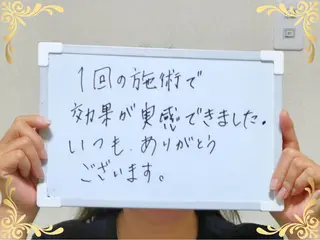 1回の施術で
効果が実感できました。
いつも、ありがとう
ございます。